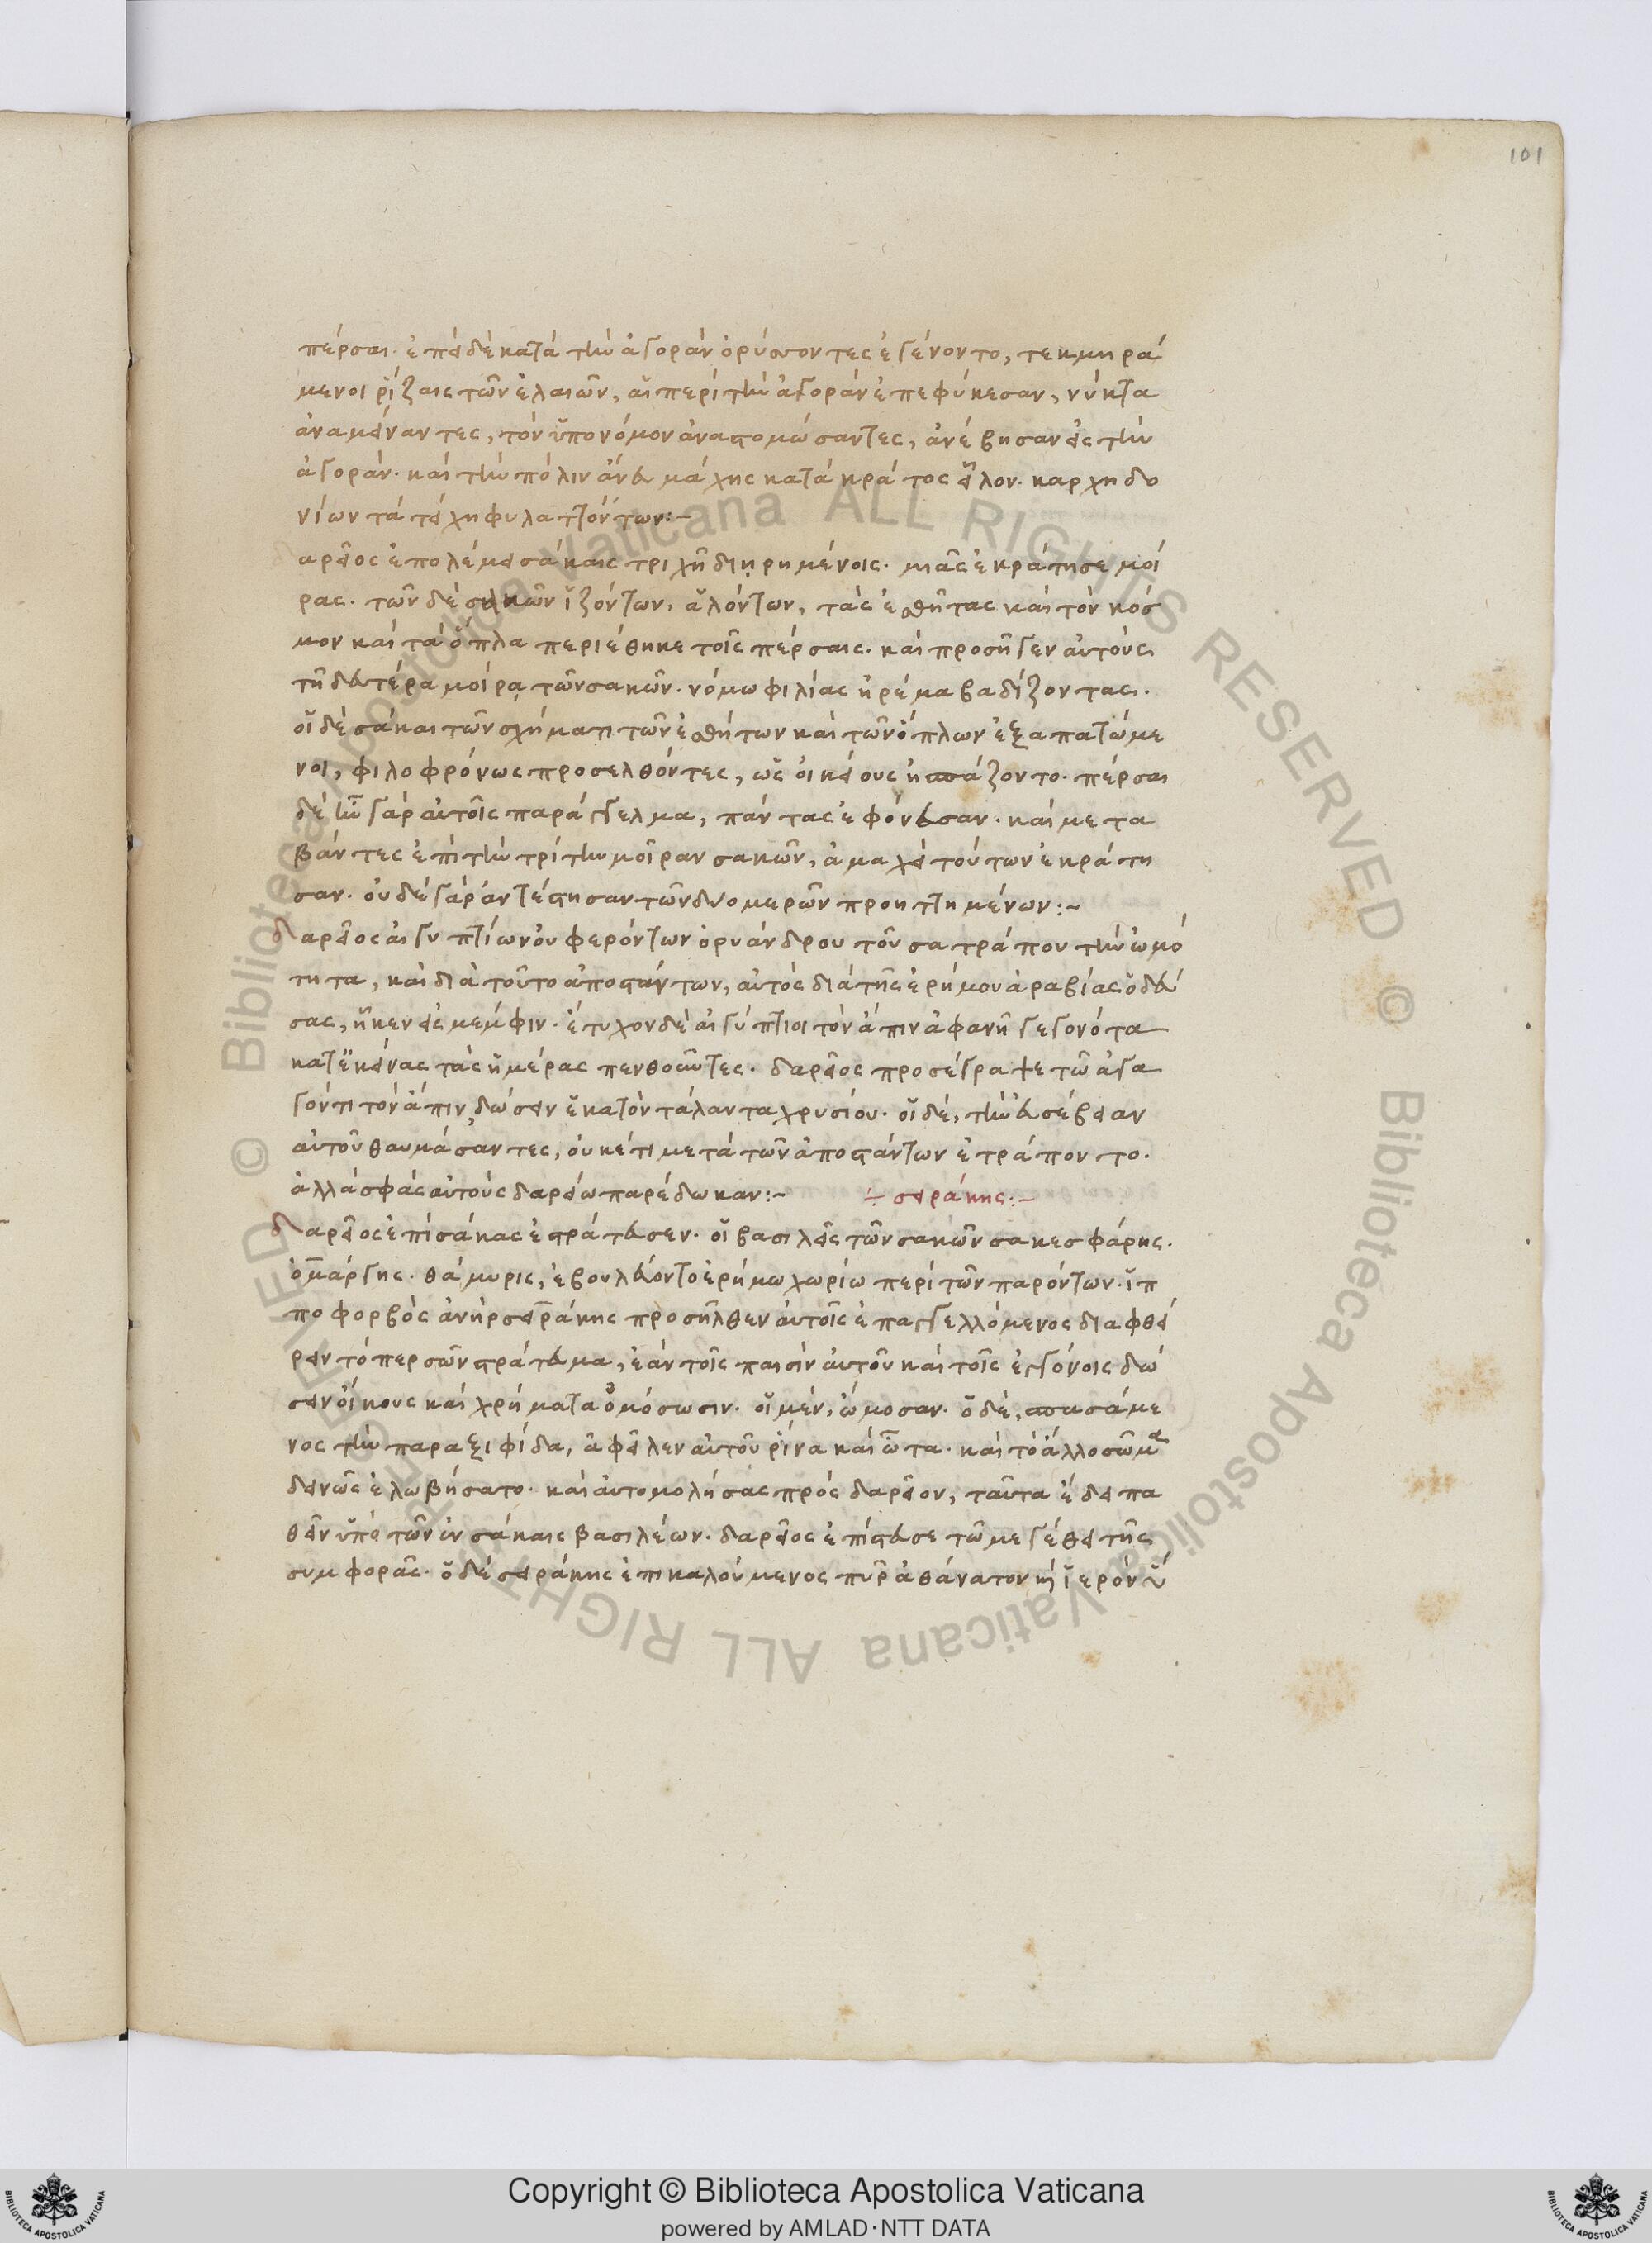 101
πέρσαι. ἐπεὶ δὲ κατὰ τὴν ἀγορὰν ὀρύσσοντες ἐγένοντο, τεκμηρά
μενοι ῥίζαις τῶν ἐλαιῶν, αἳ περὶ τὴν ἀγορὰν ἐπεφύκεσαν, νύκτα
ἀναμείναντες, τὸν ὑπονόμον ἀναστομώσαντες, ἀνέβησαν εἰς τὴν
ἀγοράν. καὶ τὴν πόλιν ἄνευ μάχης κατὰ κράτος εἷλον. καρχηδο
νίων τὰ τείχη φυλαττόντων:~
δαρεῖος ἐπολέμει σάκαις τριχῆ διηρημένοις. μιᾶς ἐκράτησε μοί
ρας. τῶν δὲ σακῶν ἱζόντων, ἁλόντων, τὰς ἐσθῆτας καὶ τὸν κόσ
μον καὶ τὰ ὅπλα περιέθηκε τοῖς πέρσαις. καὶ προσῆγεν αὐτοὺς
τῆ δευτέρα μοίρα τῶν σακῶν. νόμω φιλίας ἠρέμα βαδίζοντας.
οἱ δὲ σάκαι τῶν σχήματι τῶν ἐσθήτων καὶ τῶν ὅπλων ἐξαπατώμε
νοι, φιλοφρόνως προσελθόντες, ὡς οἰκείους ἠσπάζοντο. πέρσαι
δὲ ἦν γὰρ αὐτοῖς παράγγελμα, πάντας ἐφόνευσαν. καὶ μετα
βάντες ἐπὶ τὴν τρίτην μοῖραν σακῶν, ἀμαχεὶ τούτων ἐκράτη
σαν. οὐδὲ γὰρ ἀντέστησαν τῶν δύο μερῶν προηττημένων:~
δαρεῖος αἰγυπτίων οὐ φερόντων ὀρυάνδρου τοῦ σατράπου τὴν ὠμό
τητα, καὶ διὰ τοῦτο ἀποστάντων, αὐτὸς διὰ τῆς ἐρήμου ἀραβίας ὁδεύ
σας, ἧκεν εἰς μέμφιν. ἔτυχον δὲ αἰγύπτιοι τὸν ἄπιν ἀφανῆ γεγονότα
κατ' ἐκείνας τὰς ἡμέρας πενθοῦντες. δαρεῖος προσέγραψε τῶ ἀγα
γόντι τὸν ἄπιν, δώσειν ἑκατὸν τάλαντα χρυσίου. οἱ δὲ, τὴν εὐσέβειαν
αὐτοῦ θαυμάσαντες, οὐκέτι μετὰ τῶν ἀποστάντων ἐτράποντο.
ἀλλὰ σφὰς αὐτοὺς δαρείω παρέδωκαν:~ ÷ σειράκης:~
δαρεῖος ἐπὶ σάκας ἐστράτευσεν. οἱ βασιλεῖς τῶν σακῶν σακεσφάρης.
ὁμάργης. θάμυρις, ἐβουλεύοντο ἐρήμω χωρίω περὶ τῶν παρόντων. ἱπ
ποφορβὸς ἀνὴρ σειράκης προσῆλθεν αὐτοῖς ἐπαγγελλόμενος διαφθεί
ρειν τὸ περσῶν στράτευμα, ἐὰν τοῖς παισὶν αὐτοῦ καὶ τοῖς ἐγγόνοις δώ
σειν οἴκους καὶ χρήματα ὀμόσωσιν. οἱ μὲν, ὤμοσαν. ὁ δὲ, σπασάμε
νος τὴν παραξιφίδα, ἀφεῖλεν αὐτοῦ ῥῖνα καὶ ὦτα. καὶ τὸ ἄλλο σῶμα
δεινῶς ἐλωβήσατο. καὶ αὐτομολήσας πρὸς δαρεῖον, ταῦτα ἔδει πα
θεῖν ὑπὸ τῶν ἐν σάκαις βασιλέων. δαρεῖος ἐπίστευσε τῶ μεγέθει τῆς
συμφορᾶς. ὁ δὲ σειράκης ἐπικαλούμενος πῦρ ἀθάνατον καὶ ἱερὸν ὕ
© Biblioteca Apostolica Vaticana ALL RIGHTS RESERVED © Biblioteca Apostolica Vaticana ALL RIGHTS RESERVED
Copyright © Biblioteca Apostolica Vaticana
powered by AMLAD·NTT DATA
BIBLIOTECA APOSTOLICA VATICANA
BIBLIOTECA APOSTOLICA VATICANA